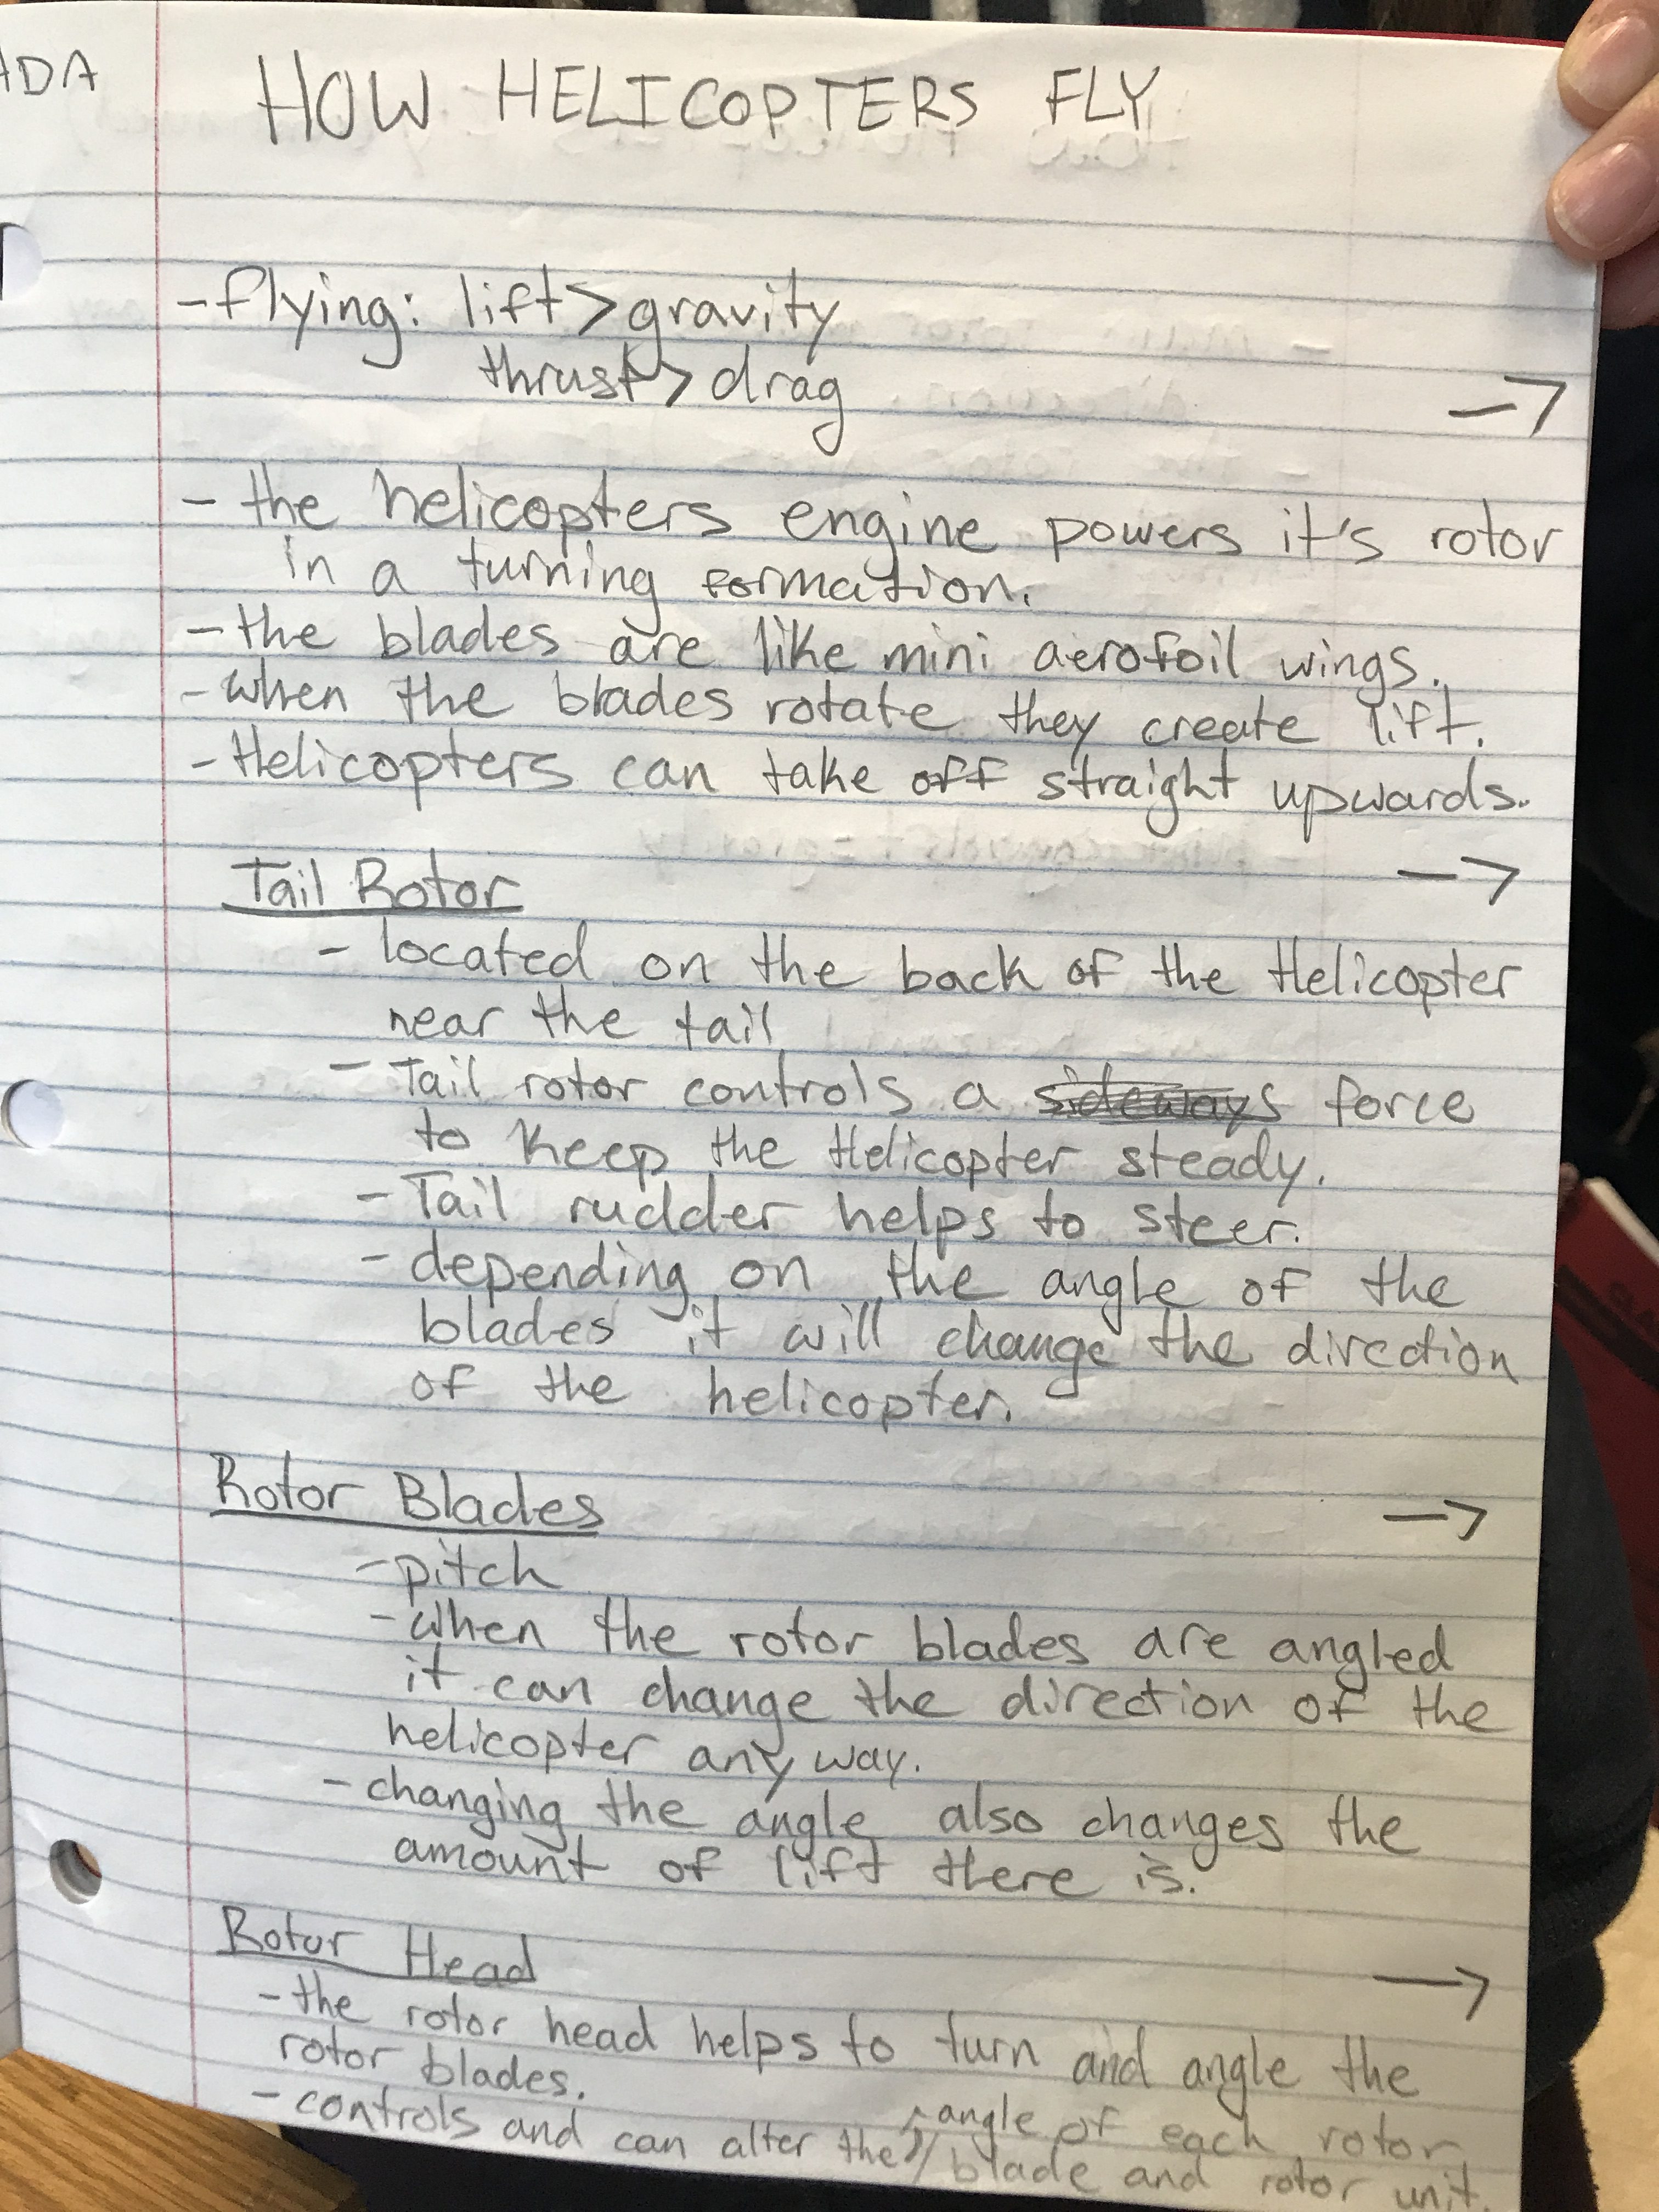 HOW HELICOPTERS FLY
- flying: lift > gravity
thrust > drag
->
- the helicopters engine powers it's rotor
in a turning formation.
- the blades are like mini aerofoil wings.
- when the blades rotate they create lift.
- Helicopters can take off straight upwards.
->
Tail Rotor
- located on the back of the Helicopter
near the tail
- Tail rotor controls a sideways force
to keep the Helicopter steady.
- Tail rudder helps to steer.
- depending on the angle of the
blades it will change the direction
of the helicopter.
Rotor Blades ->
- pitch
- when the rotor blades are angled
it can change the direction of the
helicopter any way.
- changing the angle also changes the
amount of lift there is.
Rotor Head ->
- the rotor head helps to turn and angle the
rotor blades.
- controls and can alter the angle of each rotor
blade and rotor unit.